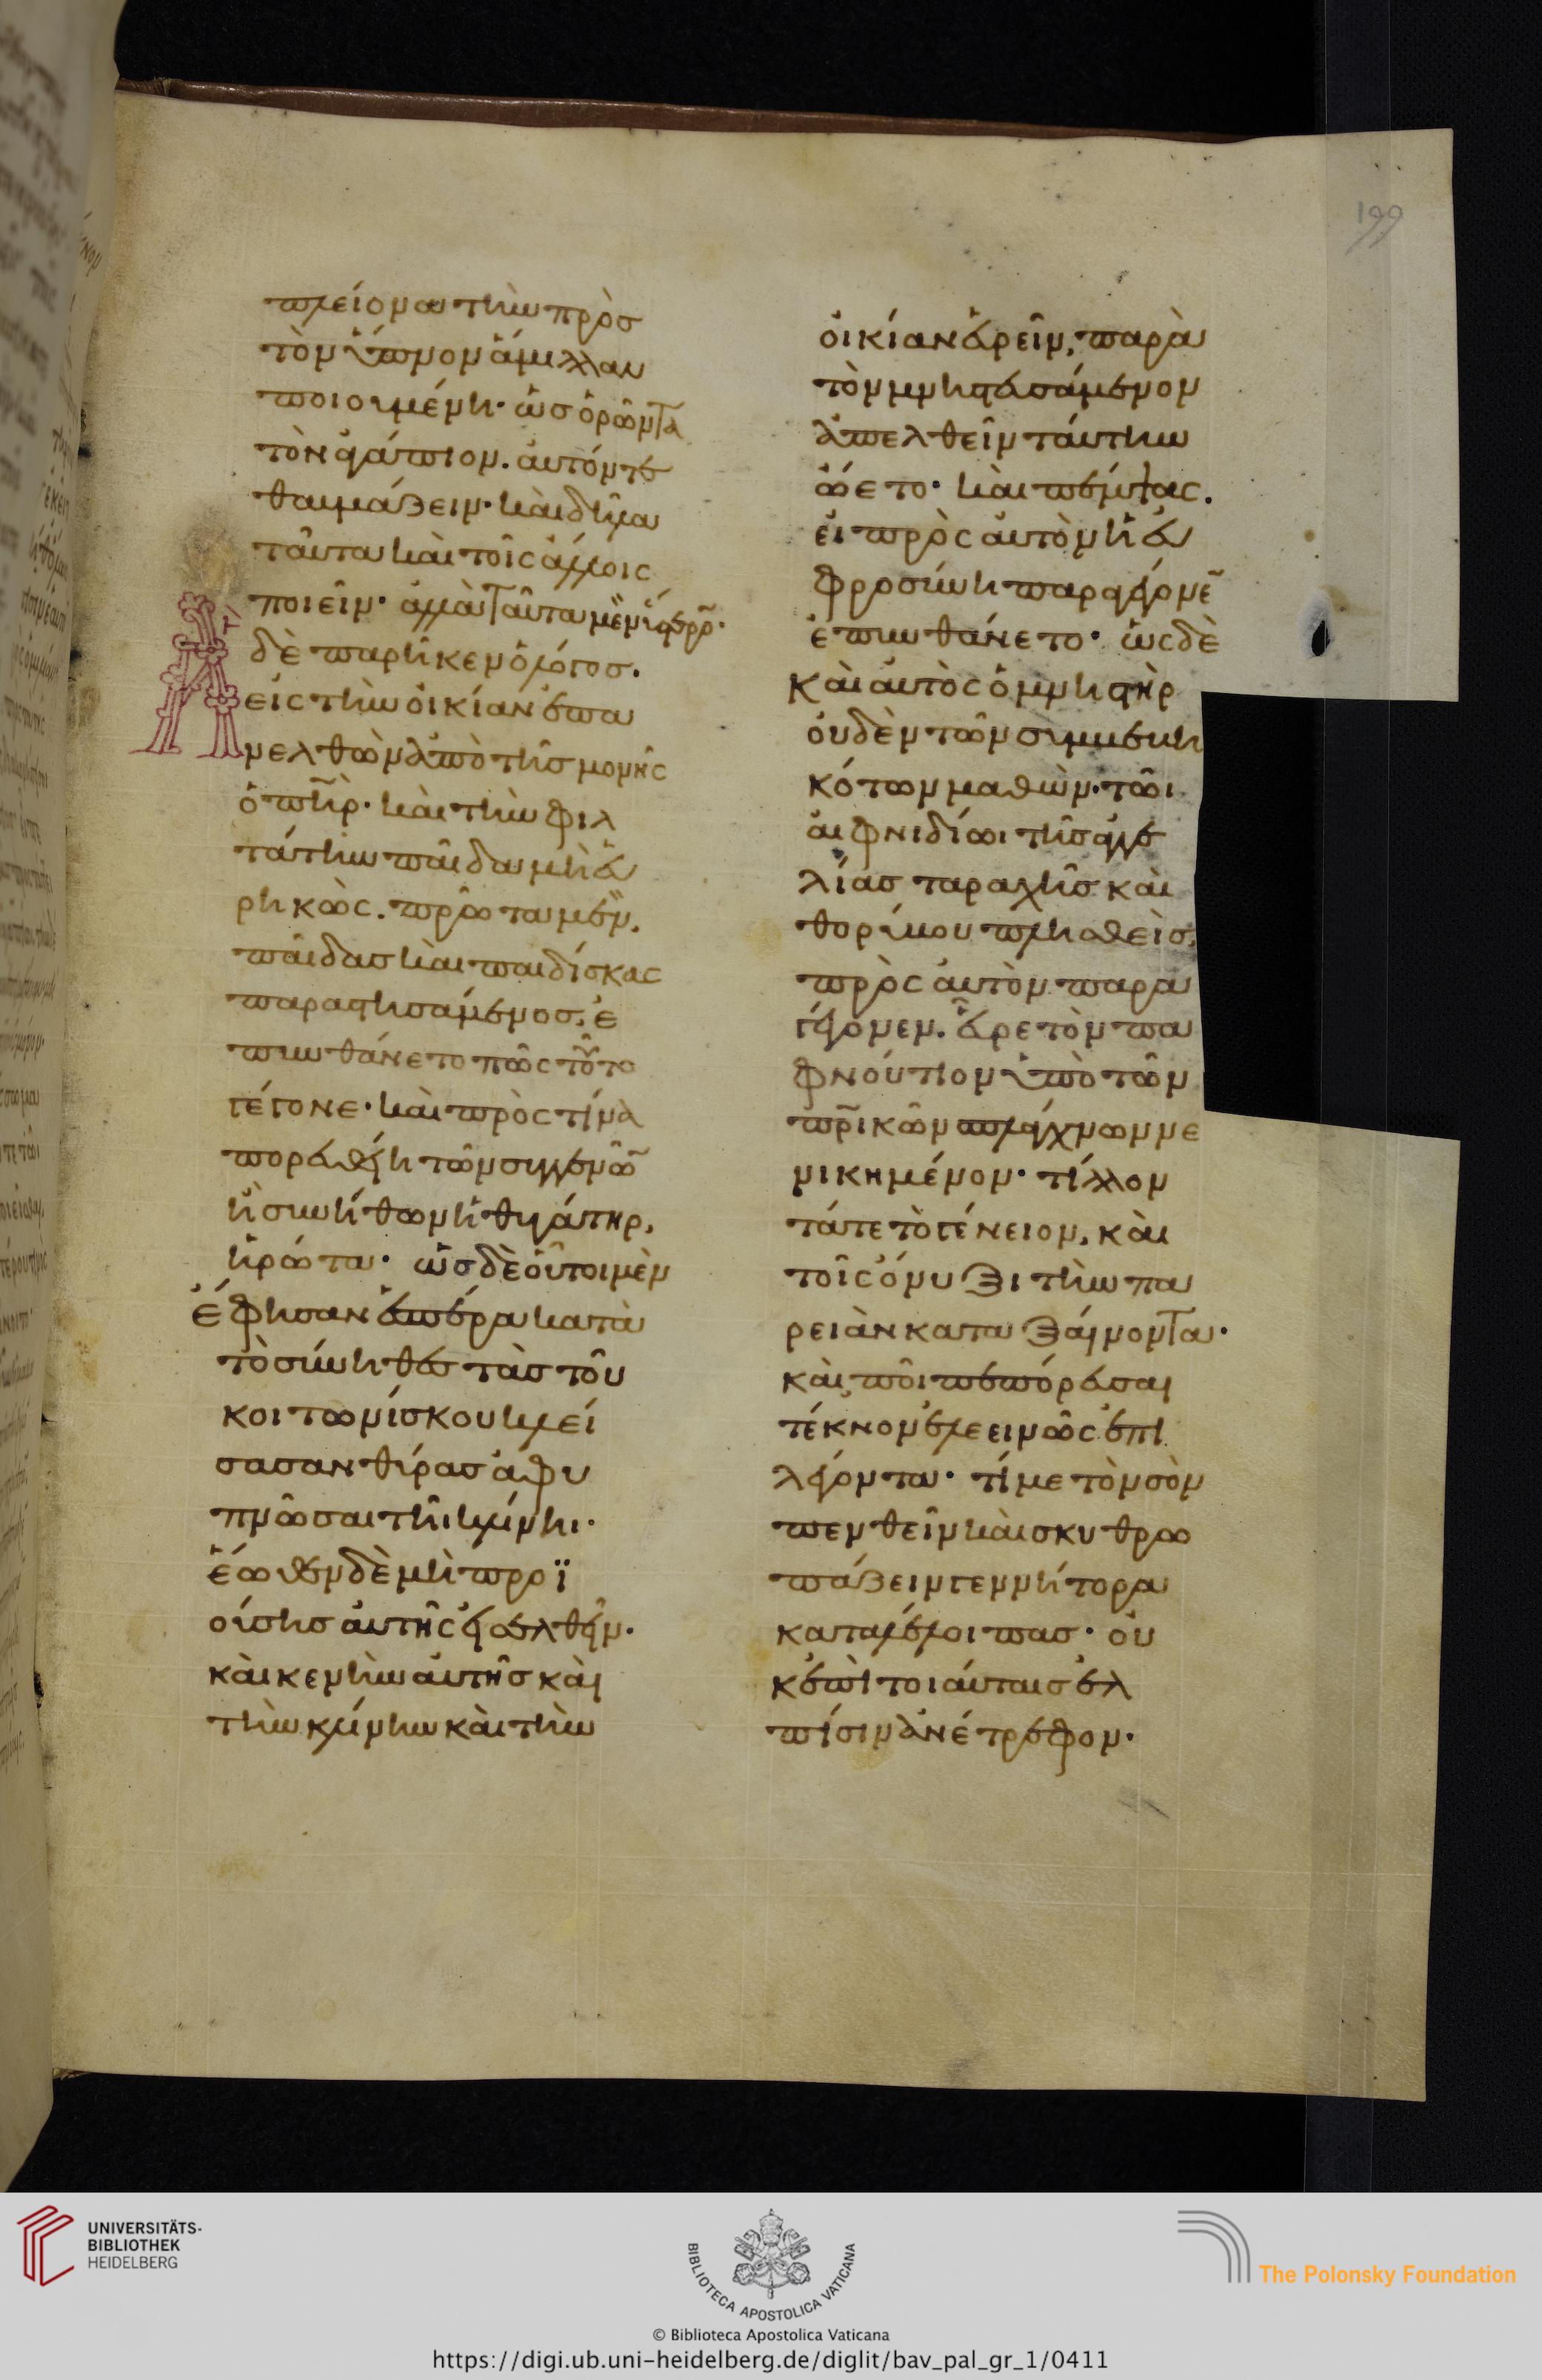 πλείονα τὴν πρὸς
τὸν ὕπνον ἅμιλλαν
ποιουμένη· ὡς ὁρῶντα
τὸν ἀγάπιον. αὐτόν τε
θαυμάζειν· καὶ δῆλα
ταῦτα καὶ τοῖς ἄλλοις
ποιεῖν· ἀλλὰ ταῦτα μὲν ὕστερο̄·
Ἃ δὲ παρῆκεν ὁ λόγος.
εἰς τὴν οἰκίαν ἐπα
νελθὼν ἀπὸ τῆς μονῆς
ὁ π̄η̄ρ̄· καὶ τὴν φιλ
τάτην παῖδα μὴ εὑ
ρηκὼς. πρῶτα μὲν,
παῖδας καὶ παιδίσκας
παραστησάμενος, ἐ
πυνθάνετο πῶς τοῦτο
γέγονε· καὶ πρὸς τίνα
πορευθείη τῶν συγγενῶ̄
ἢ συνήθων ἡ θυγάτηρ,
ἠρώτα· ὡς δὲ οὗτοι μὲν
ἔφησαν ἑσπέρα κατὰ
τὸ σύνηθες τὰς τοῦ
κοιτωνίσκου κλεί
σασαν θύρας ἀφυ
πνῶσαι τῆι κλίνηι·
ἕωθεν δὲ μὴ προϊ
ούσης αὐτῆς εἰσελθεῖν·
καὶ κενὴν αὐτῆς καὶ
τὴν κλίνην καὶ τὴν
οἰκίαν εὑρεῖν, παρὰ
τὸν μνηστευσάμενον
ἀπελθεῖν ταύτην
ὤετο· καὶ πέμψας.
εἰ πρὸς αὐτὸν ἡ εὐ
φροσύνη παραγένομε̄
ἐπυνθάνετο· ὡς δὲ
καὶ αὐτὸς ὁ μνηστὴρ
οὐδὲν τῶν συμβεβη
κότων μαθὼν· τῶι
αἰφνιδίωι τῆς ἀγγε
λίας ταραχῆς καὶ
θορύβου πλησθεὶς,
πρὸς αὐτὸν παρα
γένομεν. εὗρε τὸν πα
φνούτιον ὑπὸ τῶν
π̄ρ̄ικῶν σπλάγχνων νε
νικημένον· τίλλον
τά τε τὸ γένειον, καὶ
τοῖς ὄνυξι τὴν πα
ρειὰν καταξαίνοντα·
καὶ, ποῖ πεπόρευσαι
τέκνον ἐλεεινῶς ἐπι
λέγοντα· τί με τὸν σὸν
πενθεῖν καὶ σκυθρω
πάζειν γεννήτορα
καταλέλοιπας· οὐ
κ ἐπὶ τοιαύταις ἐλ
πίσιν ἀνέτρεφον·
199
UNIVERSITÄTS-
BIBLIOTHEK
HEIDELBERG
BIBLIOTECA APOSTOLICA VATICANA
The Polonsky Foundation
© Biblioteca Apostolica Vaticana
https://digi.ub.uni-heidelberg.de/diglit/bav_pal_gr_1/0411